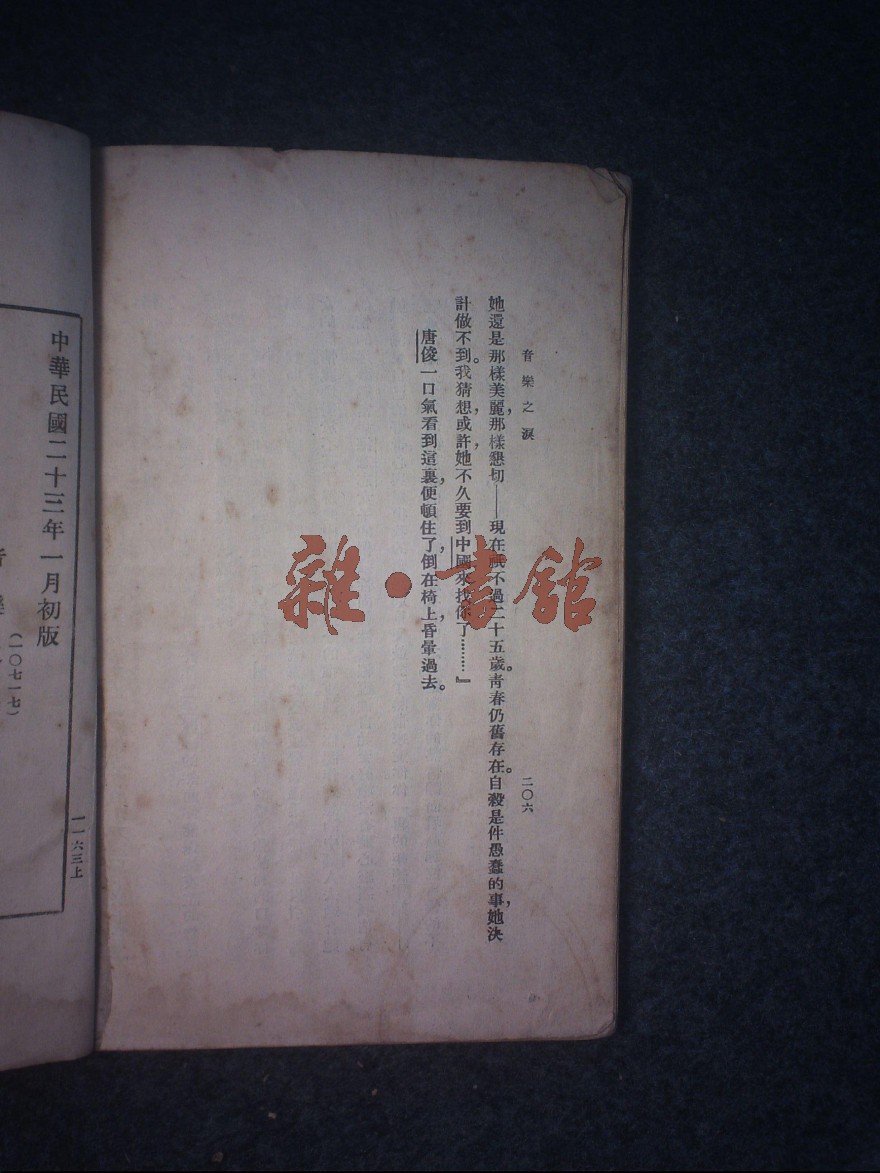 音樂之淚
二〇六
她還是那樣美麗，那樣懇切——現在祇不過二十五歲。青春仍舊存在。自殺是件愚蠢的事，她決
計做不到。我猜想，或許，她不久要到中國來找你了………』
唐俊一口氣看到這裏，便頓住了，倒在椅上，昏暈過去。
雜·書館
一一六三上
中華民國二十三年一月初版
(一〇七一七)